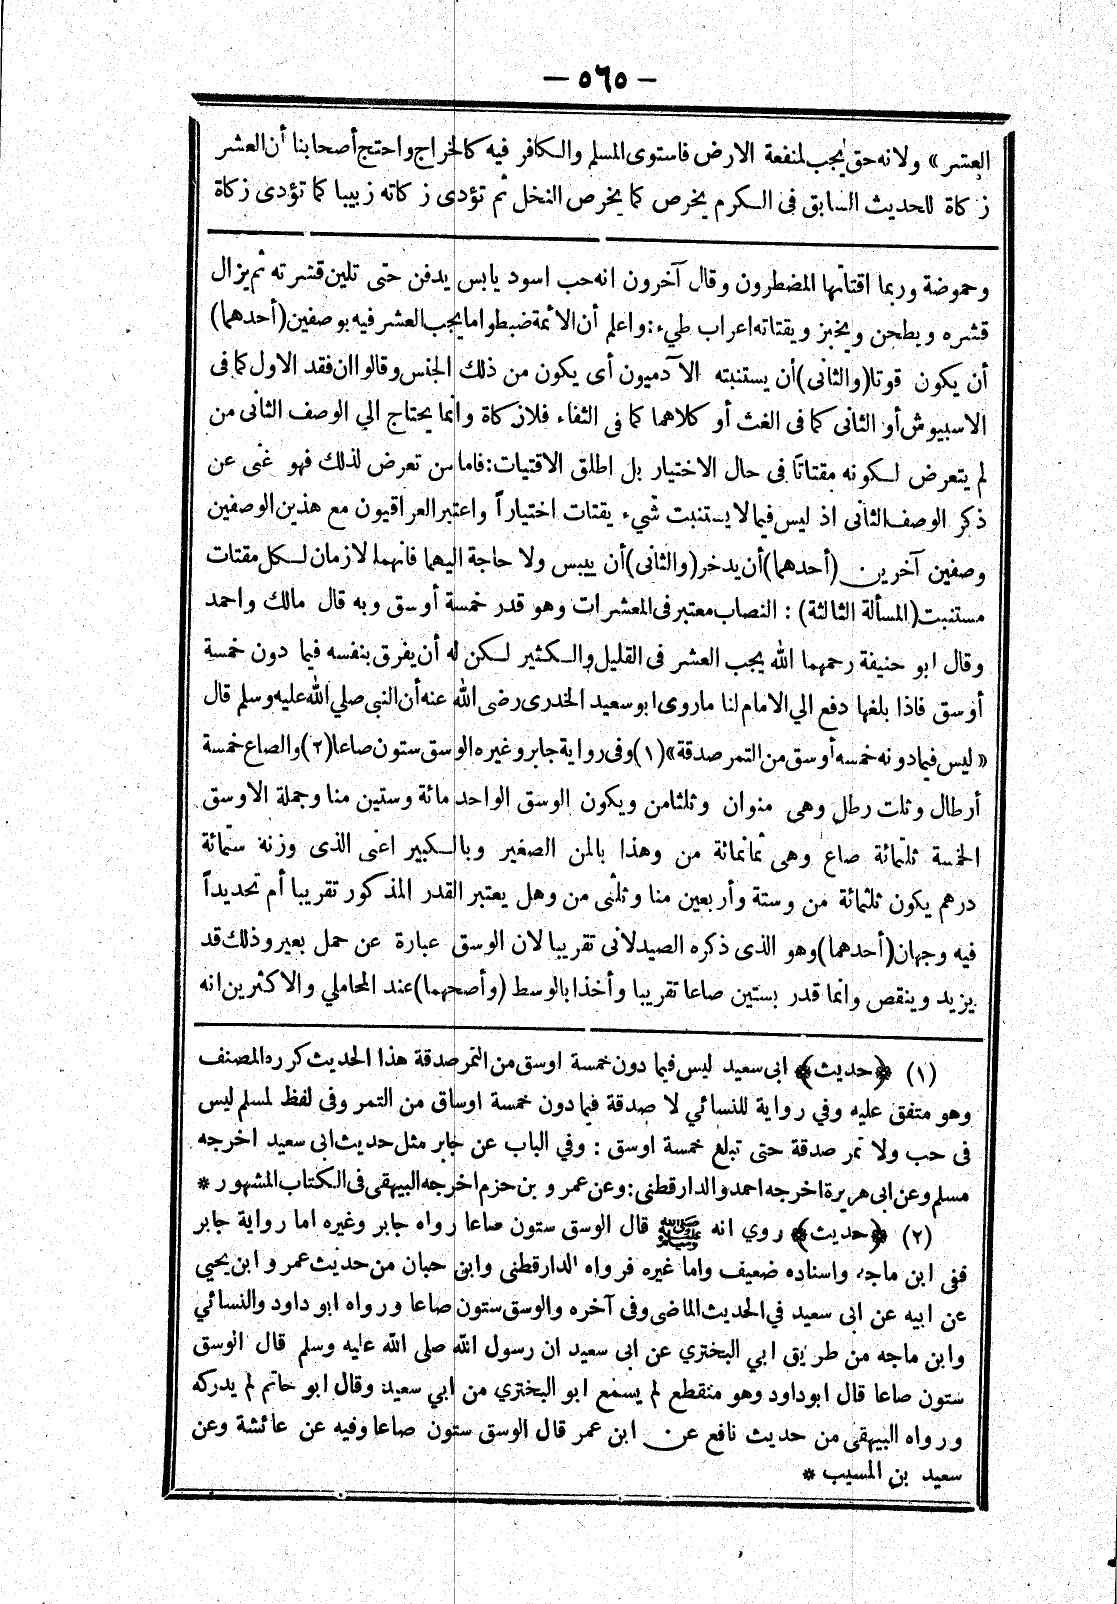 — ٥٦٥ —
العشر » ولانه حق يجب لمنفعة الارض فاستوى المسلم والكافر فيه كالخراج واحتج أصحابنا أن العشر
زكاة للحديث السابق فى الكرم يخرص كما يخرص النخل ثم تؤدى زكاته زبيبا كما تؤدى زكاة
وحموضة وربما اقتاتها المضطرون وقال آخرون انه حب اسود يابس يدفن حتى تلين قشرته ثم يزال
قشره ويطحن ويخبز ويقتاته اعراب طيء : واعلم أن الائمة ضبطوا ما يجب العشر فيه بوصفين (أحدهما)
أن يكون قوتا (والثانى) أن يستنبته الآدميون أى يكون من ذلك الجنس وقالوا ان فقد الاول كما فى
الاسبيوش أو الثانى كما فى الغث أو كلاهما كما فى الثفاء فلا زكاة وانما يحتاج الي الوصف الثانى من
لم يتعرض لكونه مقتاتا فى حال الاختيار بل اطلق الاقتيات : فاما من تعرض لذلك فهو غنى عن
ذكر الوصف الثانى اذ ليس فيما لا يستنبت شيء يقتات اختياراً واعتبر العراقيون مع هذين الوصفين
وصفين آخرين (أحدهما) أن يدخر (والثانى) أن ييبس ولا حاجة اليهما فانهما لازمان لكل مقتات
مستنبت (المسألة الثالثة) : النصاب معتبر فى المعشرات وهو قدر خمسة أوسق وبه قال مالك واحمد
وقال ابو حنيفة رحمهما الله يجب العشر فى القليل والكثير لكن له أن يفرق بنفسه فيما دون خمسة
أوسق فاذا بلغها دفع الي الامام لنا ما روى ابو سعيد الخدرى رضى الله عنه أن النبى صلي الله عليه وسلم قال
« ليس فيما دونه خمسه أوسق من التمر صدقة » (١) وفى رواية جابر وغيره الوسق ستون صاعا (٢) والصاع خمسة
أرطال وثلث رطل وهى منوان وثلثا من ويكون الوسق الواحد مائة وستين منا وجملة الاوسق
الخمسة ثلثمائة صاع وهى ثمانمائة من وهذا بالمن الصغير وبالكبير اعنى الذى وزنة ستمائة
درهم يكون ثلثمائة من وستة وأربعين منا وثلثى من وهل يعتبر القدر المذكور تقريبا أم تحديداً
فيه وجهان (أحدهما) وهو الذى ذكره الصيدلانى تقريبا لان الوسق عبارة عن حمل بعير وذلك قد
يزيد وينقص وانما قدر بستين صاعا تقريبا وأخذا بالوسط (وأصحهما) عند المحاملي والاكثرين انه
(١) ﴿حديث﴾ ابى سعيد ليس فيما دون خمسة اوسق من التمر صدقة هذا الحديث كرره المصنف
وهو متفق عليه وفي رواية للنسائي لا صدقة فيما دون خمسة اوساق من التمر وفى لفظ لمسلم ليس
فى حب ولا تمر صدقة حتى تبلغ خمسة اوسق : وفي الباب عن جابر مثل حديث ابى سعيد اخرجه
مسلم وعن ابى هريرة اخرجه احمد والدارقطنى : وعن عمرو بن حزم اخرجه البيهقى فى الكتاب المشهور *
(٢) ﴿حديث﴾ روي انه ﷺ قال الوسق ستون صاعا رواه جابر وغيره اما رواية جابر
ففى ابن ماجه واسناده ضعيف واما غيره فرواه الدارقطنى وابن حبان من حديث عمرو ابن يحيي
عن ابيه عن ابى سعيد في الحديث الماضى وفى آخره والوسق ستون صاعا ورواه ابو داود والنسائي
وابن ماجه من طريق ابي البختري عن ابى سعيد ان رسول الله صلى الله عليه وسلم قال الوسق
ستون صاعا قال ابو داود وهو منقطع لم يسمع ابو البختري من ابي سعيد وقال ابو حاتم لم يدركه
ورواه البيهقى من حديث نافع عن ابن عمر قال الوسق ستون صاعا وفيه عن عائشة وعن
سعيد بن المسيب *